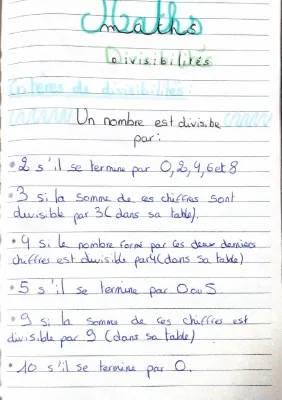 Maths
Divisibilités
Critères de divisibilités :
Un nombre est divisibe
par :
• 2 s'il se termine par 0, 2, 4, 6 et 8
• 3 si la somme de ces chiffres sont
divisible par 3 (dans sa table).
• 4 si le nombre formé par ces deux derniers
chiffres est divisible par 4 (dans sa table)
• 5 s'il se termine par 0 ou 5.
• 9 si la somme de ces chiffres est
divisible par 9 (dans sa table)
• 10 s'il se termine par 0.